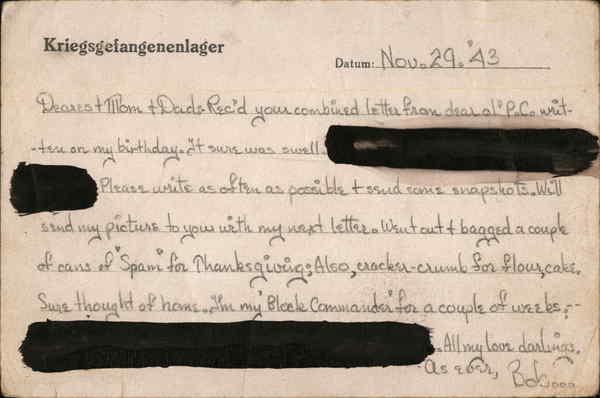 Kriegsgefangenenlager
Datum: Nov. 29. '43
Dearest Mom & Dad: Rec'd your combined letter from dear ol' P.C. writ-
-ten on my birthday. It sure was swell
Please write as often as possible & send some snapshots. Will
send my picture to you with my next letter. Went out & bagged a couple
of cans of "Spam" for Thanksgiving; Also, cracker-crumb for flour, cake.
Sure thought of home. I'm my "Block Commander" for a couple of weeks; --
. All my love darlings.
As ever, Bob...